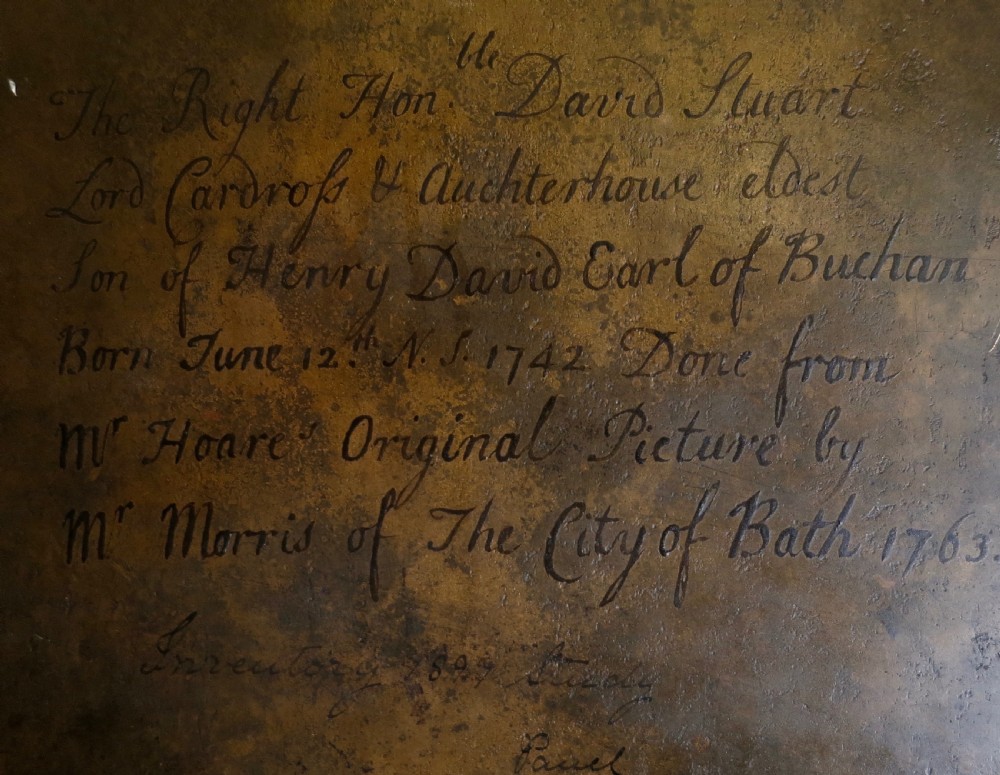 The Right Hon.ble David Stuart
Lord Cardroſs & Auchterhouse eldest
Son of Henry David Earl of Buchan
Born June 12.th N. S. 1742 Done from
Mr Hoare's Original Picture by
Mr Morris of The City of Bath 1763
Inventory Study
Panel